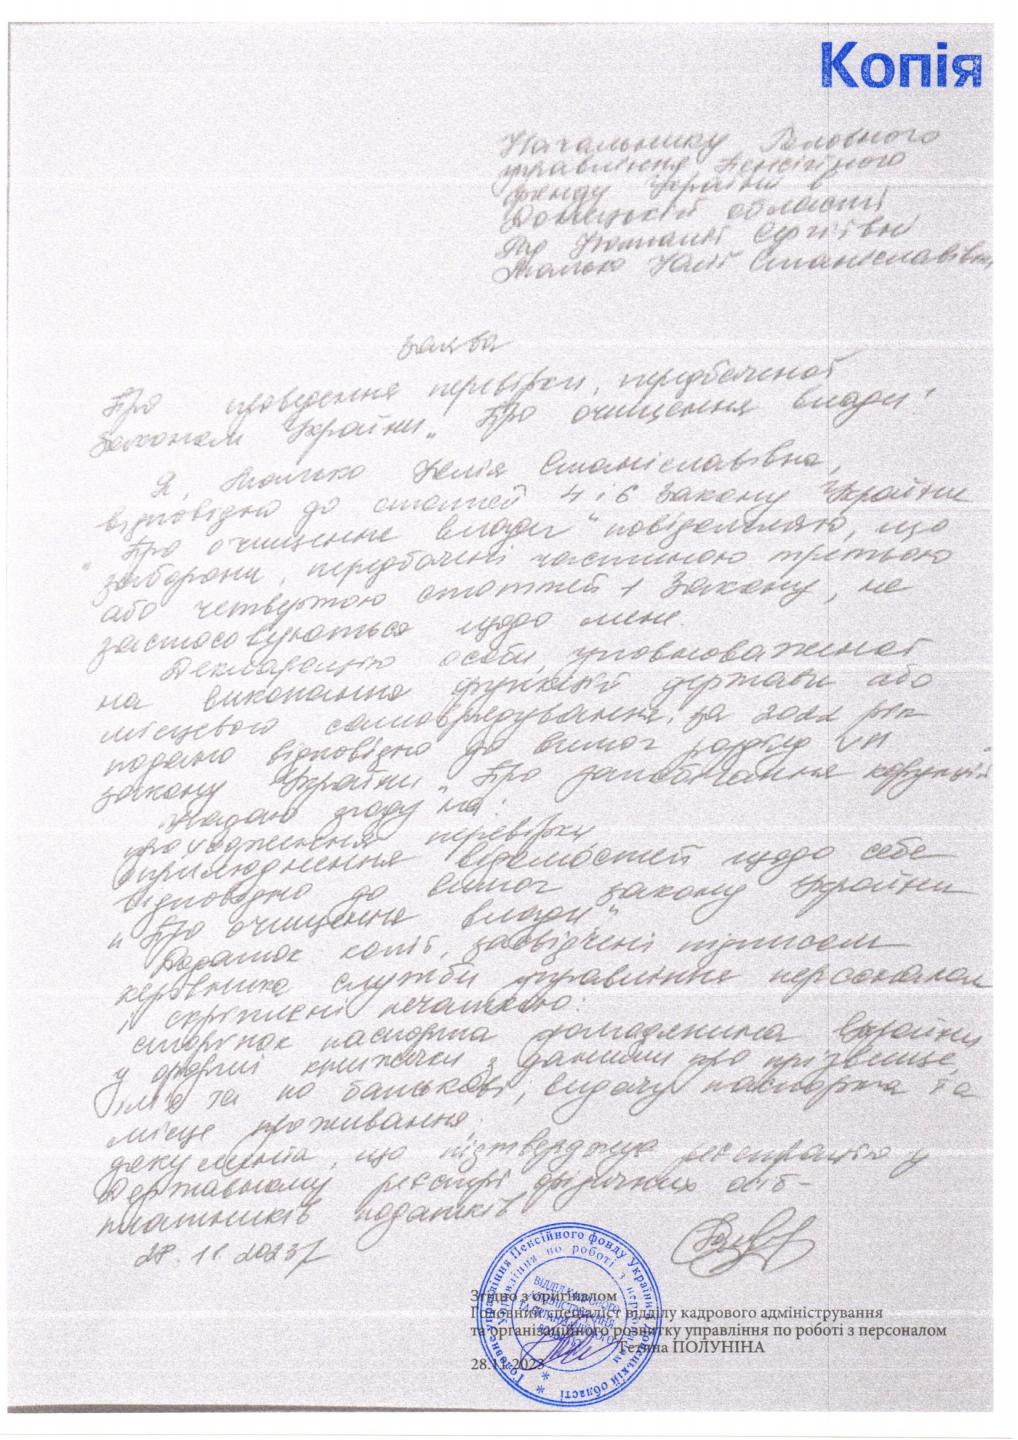 Копія
Начальнику Головного
управління Пенсійного
фонду України в
Донецькій області
Сергіївні
Юлії Станіславівни
Заява
Про проведення перевірки, передбаченої
Законом України „Про очищення влади"
Я, Юлія Станіславівна,
відповідно до статтей 4 і 6 Закону України
"Про очищення влади" повідомляю, що
заборони, передбачені частиною третьою
або четвертою статтей 1 Закону, не
застосовуються щодо мене.
Декларацію особи, уповноваженої
на виконання функцій держави або
місцевого самоврядування, за 2022 рік
подано відповідно до вимог розділу VII
закону України „Про запобігання корупції"
Надаю згоду на:
проходження перевірки
оприлюднення відомостей щодо себе
відповідно до вимог закону України
"Про очищення влади"
Додаток: копії, засвідчені підписом
керівника служби управління персоналом
і скріплені печаткою:
сторінок паспорта громадянина України
у формі книжечки з даними про прізвище,
ім'я та по батькові, видачу паспорта та
місце проживання,
документа, що підтверджує реєстрацію у
Державному реєстрі фізичних осіб-
платників податків
28.11.2023р
Згідно з оригіналом
Головний спеціаліст відділу кадрового адміністрування
та організаційного розвитку управління по роботі з персоналом
Тетяна ПОЛУНІНА
28.11.2023
Головне управління Пенсійного фонду України в Донецькій області
Управління по роботі з персоналом